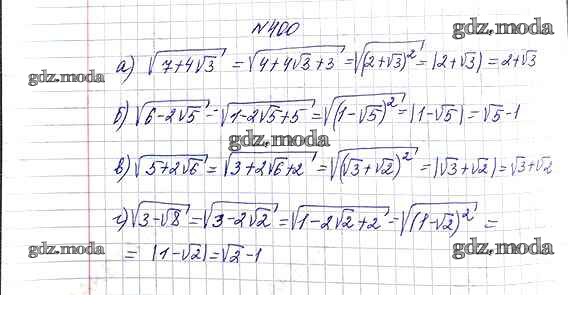 №400
gdz.moda
а) √(7+4√3) = √(4+4√3+3) = √((2+√3)²) = |2+√3| = 2+√3
gdz.moda
б) √(6-2√5) = √(1-2√5+5) = √((1-√5)²) = |1-√5| = √5-1
gdz.moda
в) √(5+2√6) = √(3+2√6+2) = √((√3+√2)²) = |√3+√2| = √3+√2
г) √(3-√8) = √(3-2√2) = √(1-2√2+2) = √((1-√2)²) =
= |1-√2| = √2-1
gdz.moda
gdz.moda